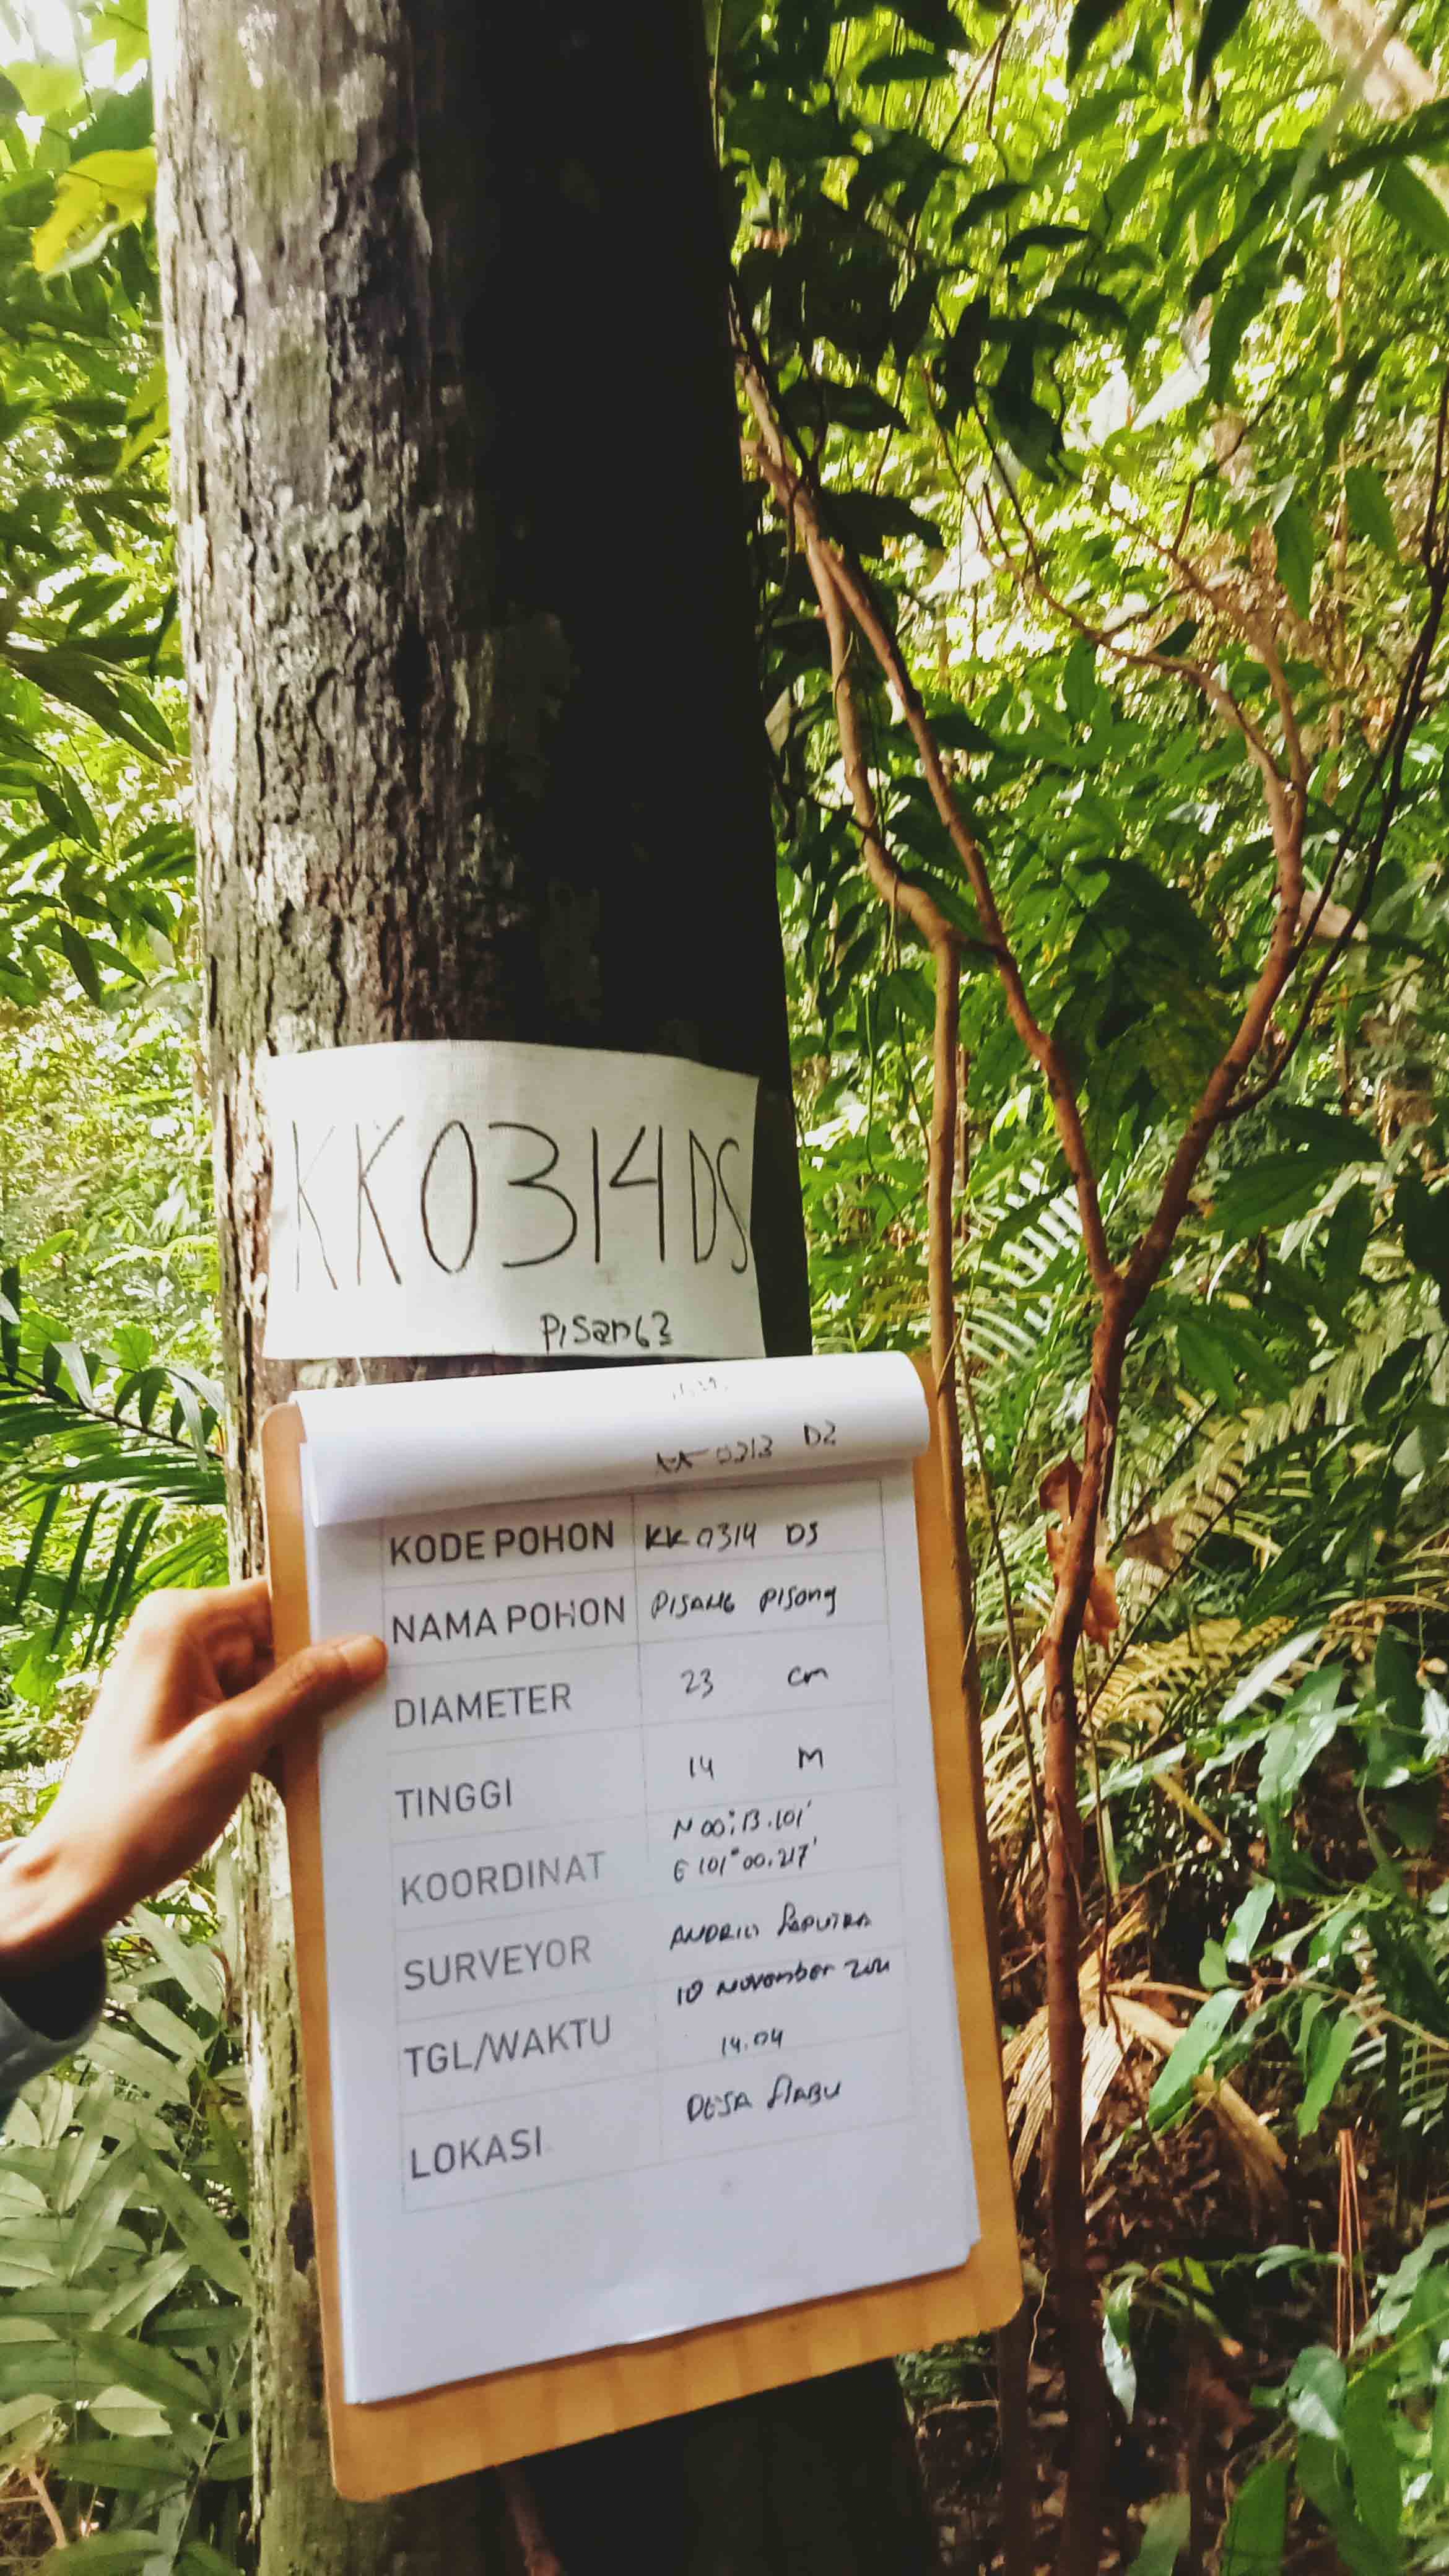 KK0314DS
PiSanG 2
KK 0313 DZ
KODE POHON KK 0314 DS
NAMA POHON PISANG PISang
DIAMETER 23 cm
TINGGI 14 M
KOORDINAT N 00° 13.101'
E 101° 00.217'
SURVEYOR SAPUTRA
TGL/WAKTU 10 November
14.04
LOKASI DESA SIABU